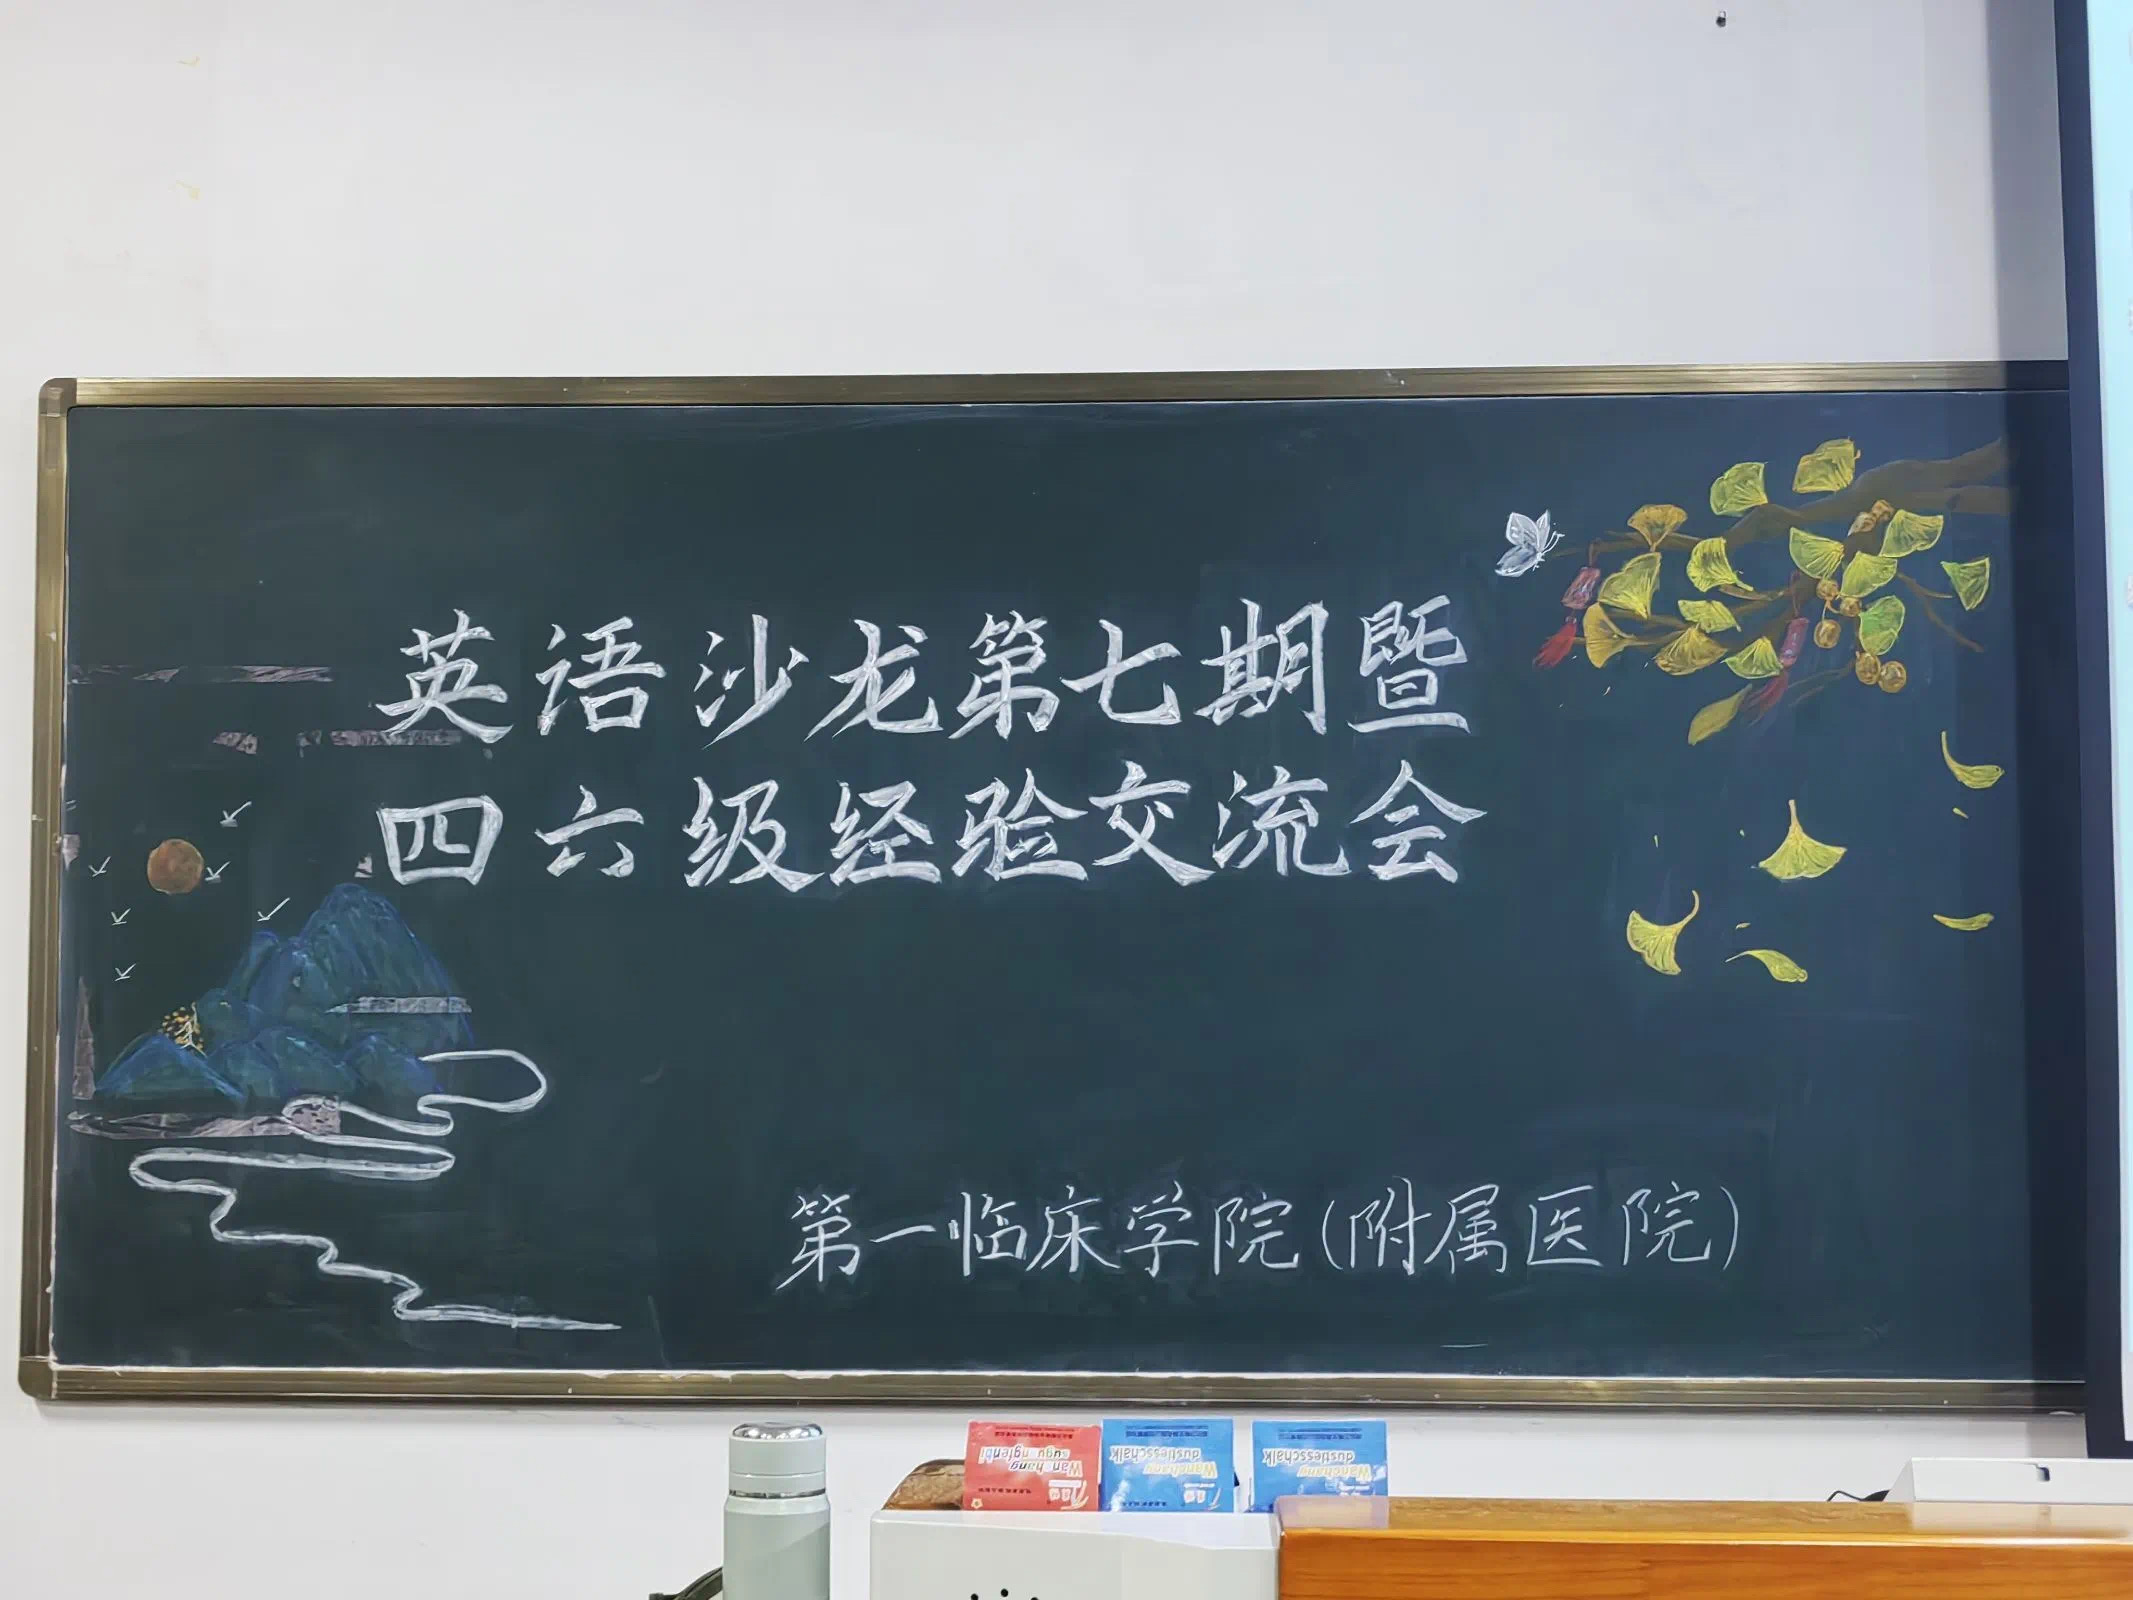 英语沙龙第七期暨
四六级经验交流会
第一临床学院(附属医院)
Wanchang
dustlesschalk
Wanchang
dustlesschalk